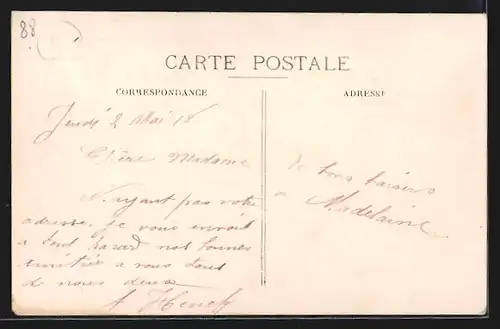 88
CARTE POSTALE
CORRESPONDANCE
ADRESSE
Jeudi 2 Mai 18
Chère Madame
N'ayant pas votre
adresse je vous envoit
a tout hazard nos bonnes
amitiés a vous tous
de nous deux
de bons baisers
a Madelaine